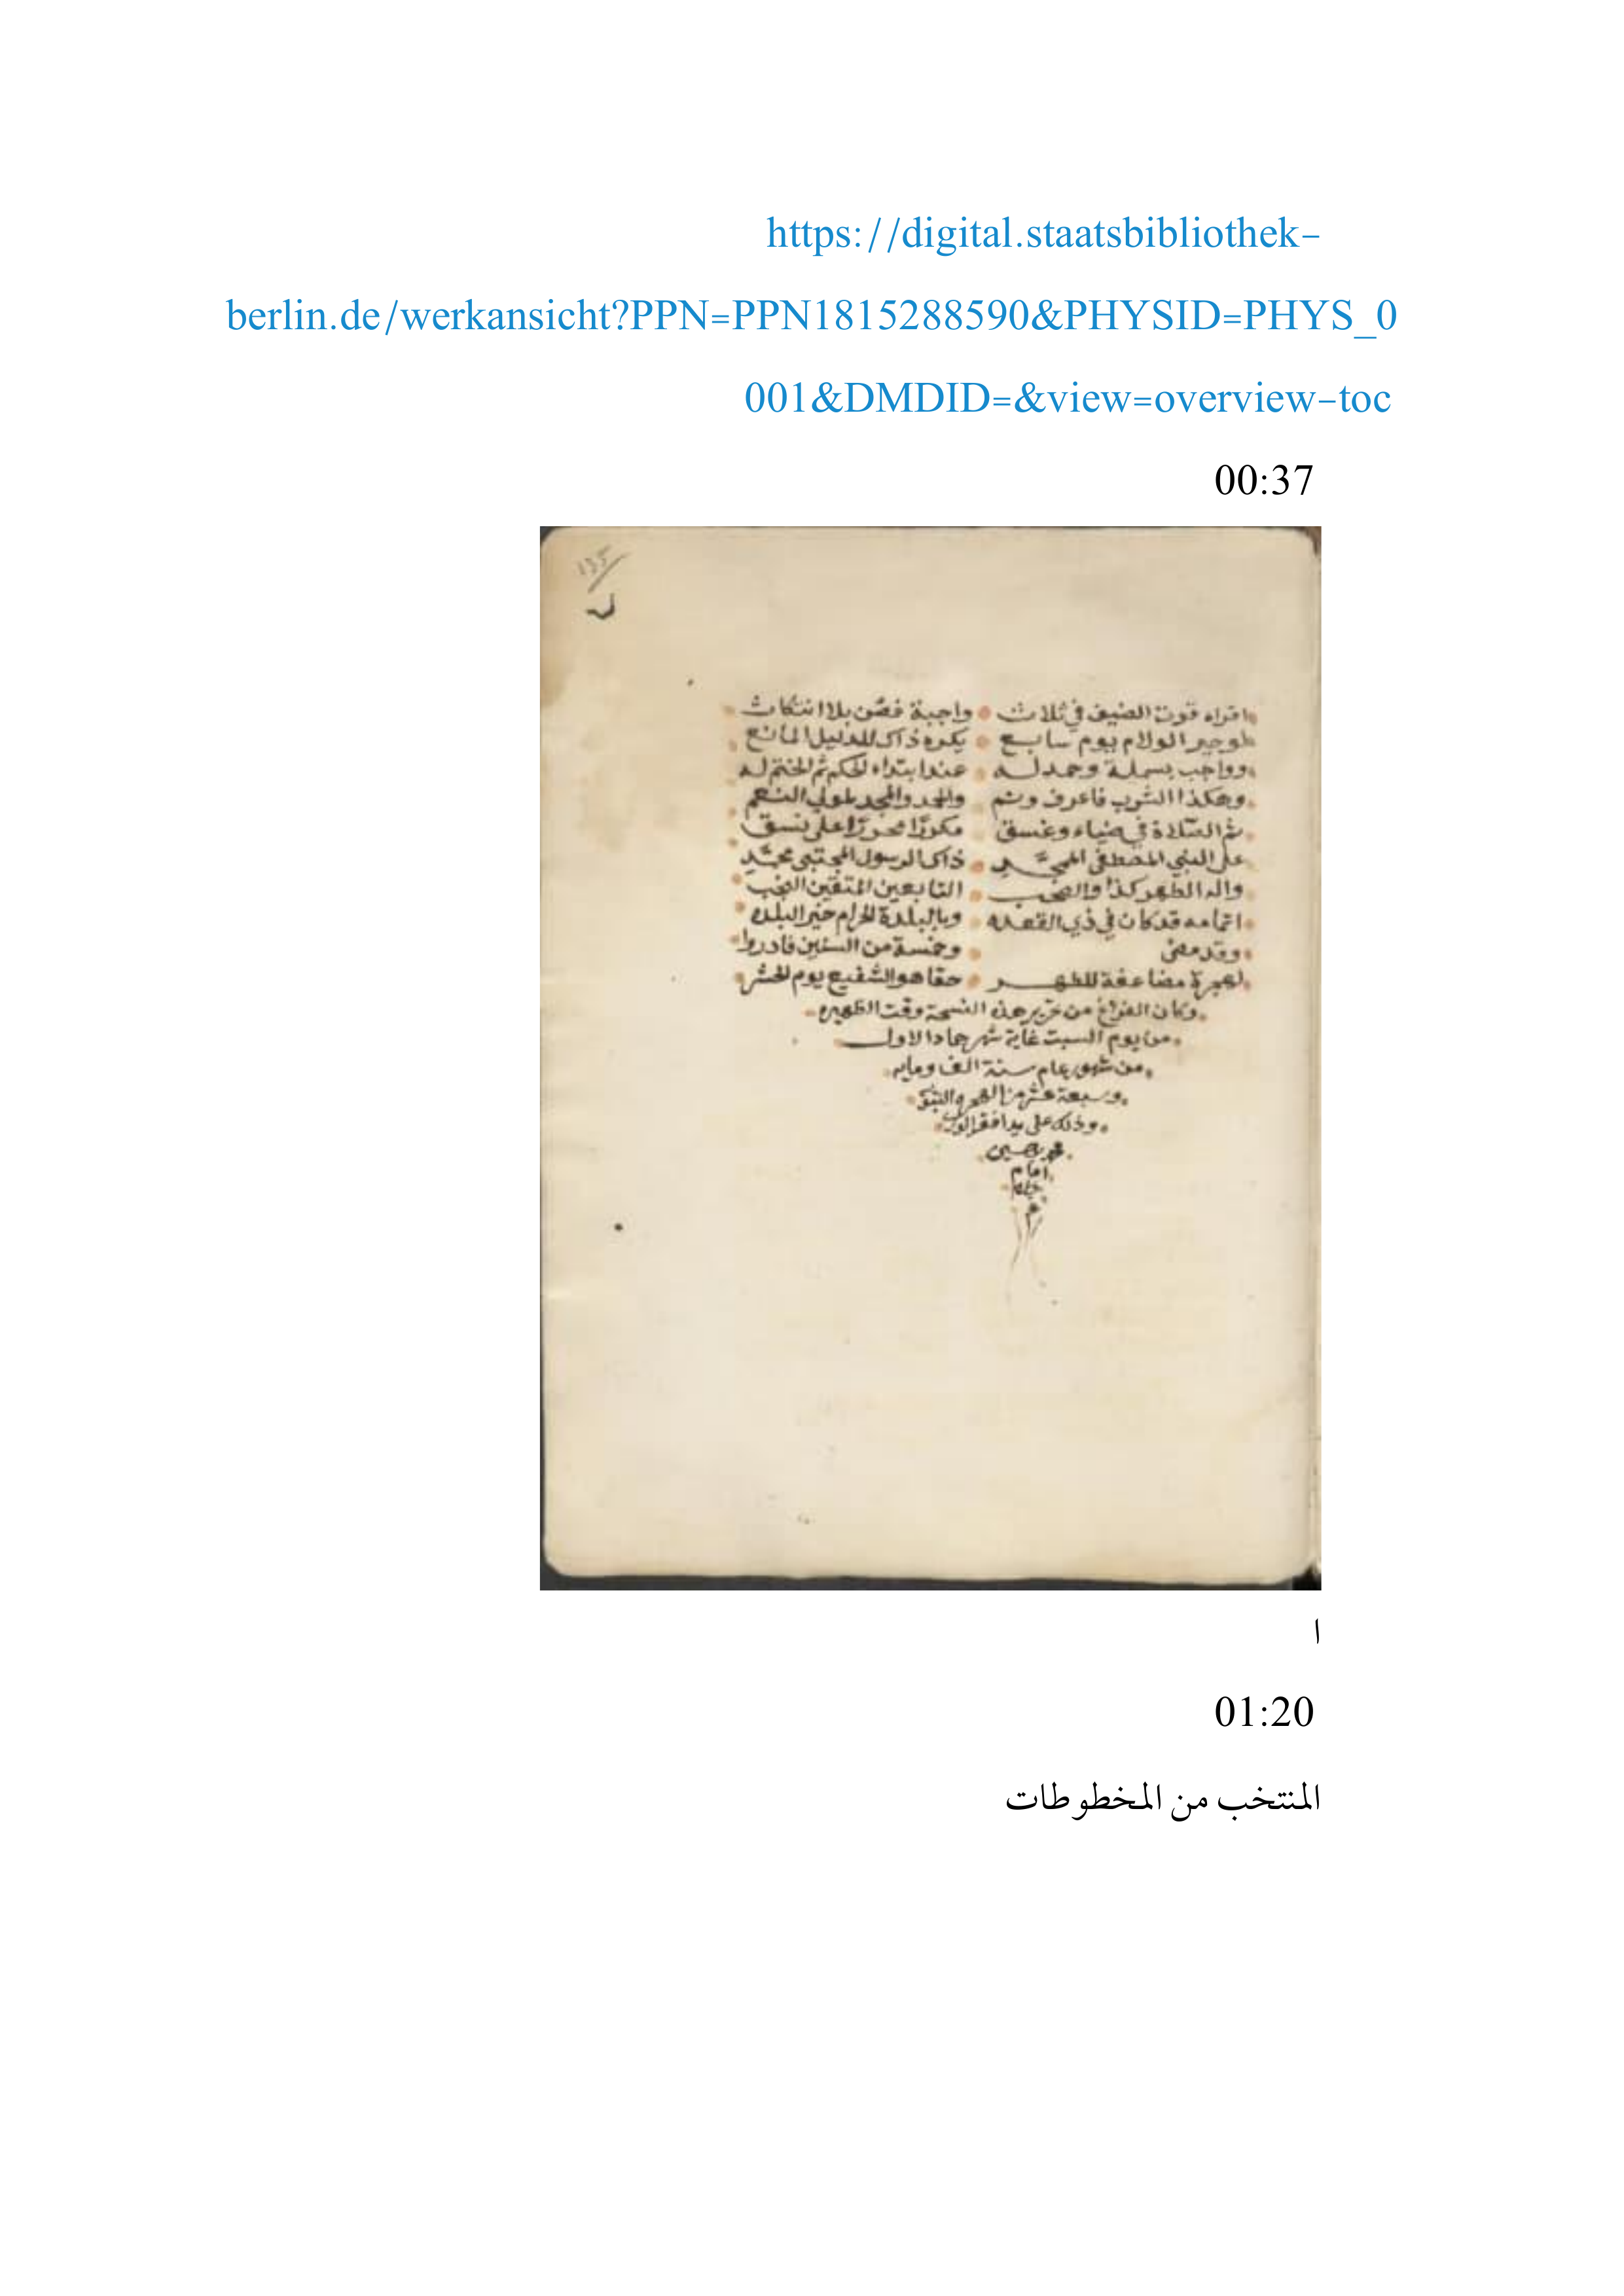 https://digital.staatsbibliothek-
berlin.de/werkansicht?PPN=PPN1815288590&PHYSID=PHYS_0
001&DMDID=&view=overview-toc
00:37
135
اقراء قوت الضيف في ثلاث واجبة فصن بلا انتكاث
يوم سابع يكره ذاك للدليل المانع
وواجب بسملة وحمدله عند ابتداء الحكم ثم الختم له
وهكذا الشرب فاعرف وتم والحمد والمجد لمولي النعم
ثم الصلاة في ضياء وغسق مكررا محررا على نسق
على النبي المصطفى الممجد ذاك الرسول المجتبى محمد
واله الطهر كذا والصحب التابعين المتقين النخب
اتمامه قد كان في ذي القعده وبالبلدة الحرام خير البلده
وقد مضى وخمسة من السنين فادر وا
لهجرة مضاعفة للطهر حقا هو الشفيع يوم الحشر
وكان الفراغ من تحرير هذه النسخة وقت الظهيره
من يوم السبت غاية شهر جمادا الاول
من شهور عام سنة الف ومايه
وسبعة عشر من الهجرة النبو
وذلك على يد افقر الورى
محمد حسين
امام
م
ا
01:20
المنتخب من المخطوطات